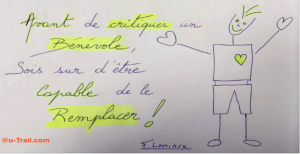 Avant de critiquer un
Bénévole,
Sois sur d'être
Capable de le
Remplacer !
@u-Trail.com
J. Lamiaux